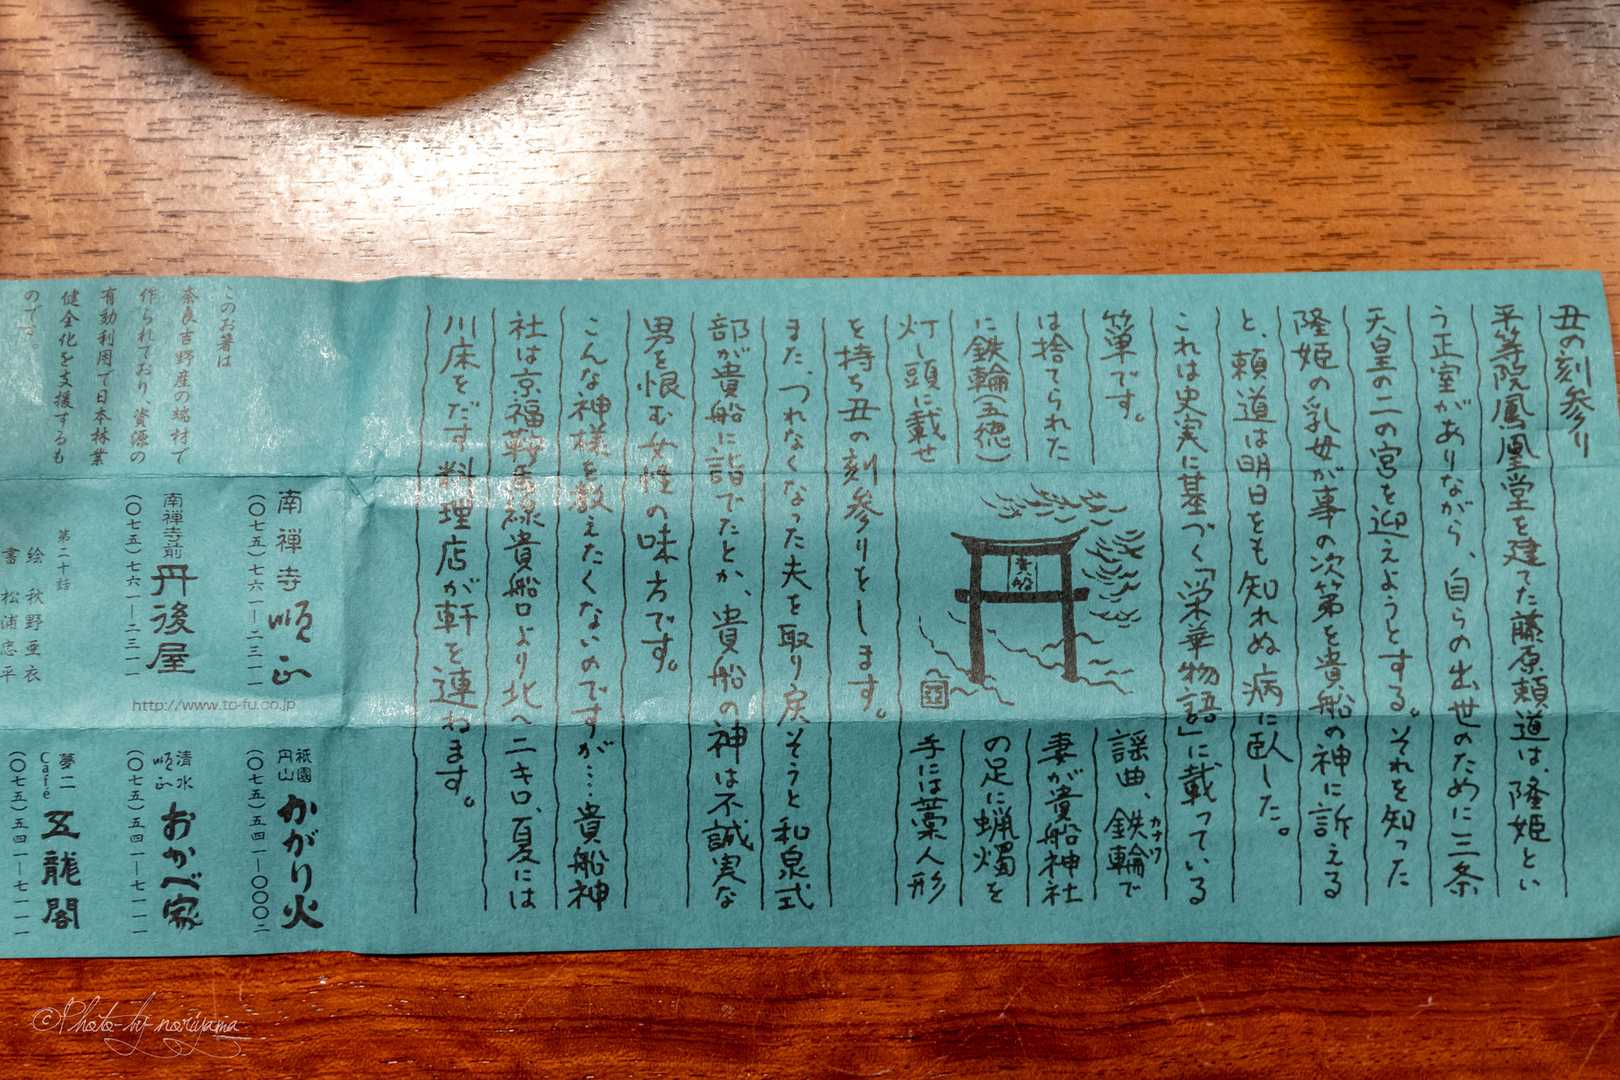 丑の刻参り
平等院鳳凰堂を建てた藤原頼道は、隆姫とい
う正室がありながら、自らの出世のために三条
天皇の二の宮を迎えようとする。それを知った
隆姫の乳母が事の次第を貴船の神に訴える
と、頼道は明日をも知れぬ病に臥した。
これは史実に基づく「栄華物語」に載っている
箪です。
謡曲、鉄輪で
カナワ
は捨てられた
妻が貴船神社
に鉄輪(五徳)
の足に蝋燭を
灯し頭に載せ
手には藁人形
を持ち丑の刻参りをします。
また、つれなくなった夫を取り戻そうと和泉式
部が貴船に詣でたとか、貴船の神は不誠実な
男を恨む女性の味方です。
こんな神様を教えたくないのですが…貴船神
社は京福鞍馬線貴船口より北へ二キロ、夏には
川床をだす料理店が軒を連ねます。
貴船
このお箸は
奈良吉野産の端材で
作られており、資源の
有効利用で日本林業
健全化を支援するも
のです。
南禅寺 順正
(〇七五)七六一ー二三一一
南禅寺前 丹後屋
(〇七五)七六一ー二三一一
http://www.to-fu.co.jp
第二十話
絵 秋野亜衣
書 松浦忠平
祇園
円山 かがり火
(〇七五)五四一ー〇〇〇二
清水
順正 おかべ家
(〇七五)五四一ー七一一一
夢二
Café 五龍閣
(〇七五)五四一ー七一一一
©Photo by noriyama